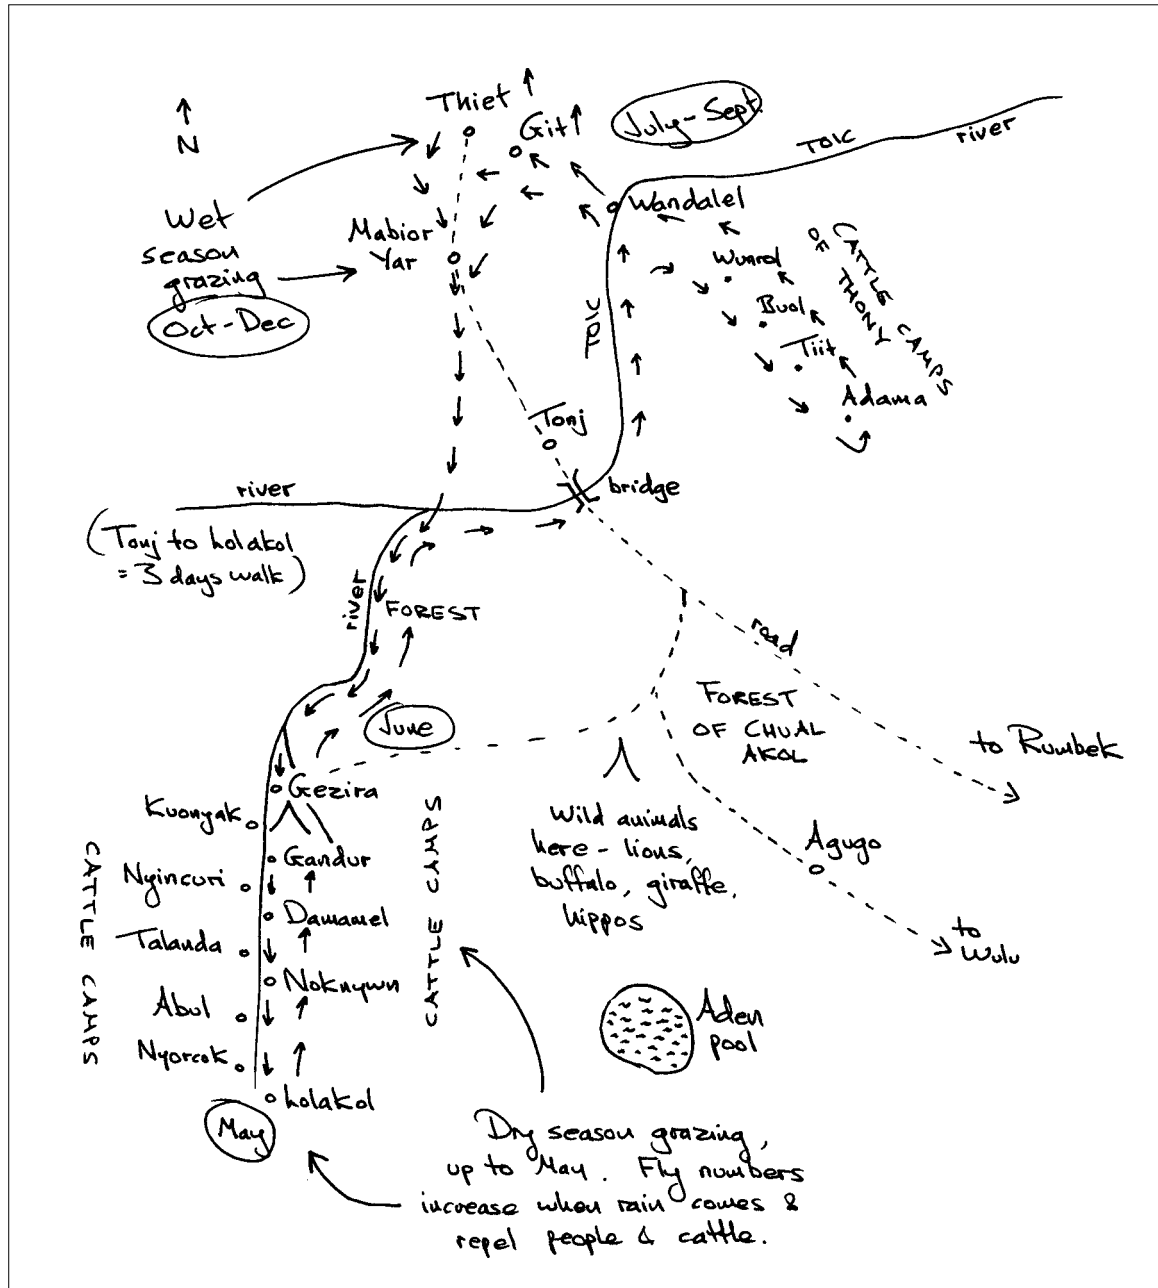 N
Thiet
Git
July-Sept.
TOIC
river
Wandalel
Wet
season
grazing
Oct-Dec
Mabior
Yar
Wunrol
Buol
Tiit
Adama
CATTLE CAMPS
OF THONY
TOIC
Tonj
bridge
river
(Tonj to Lolakol
= 3 days walk)
river
FOREST
road
June
FOREST
OF CHUAL
AKOL
to Rumbek
Gezira
Kuonyak
Gandur
Nyincuri
Damamel
Talanda
Noknywn
Abul
Nyorcok
Lolakol
CATTLE CAMPS
CATTLE CAMPS
Wild animals
here - lions,
buffalo, giraffe,
hippos
Agugo
to
Wulu
Aden
pool
May
Dry season grazing,
up to May. Fly numbers
increase when rain comes &
repel people & cattle.